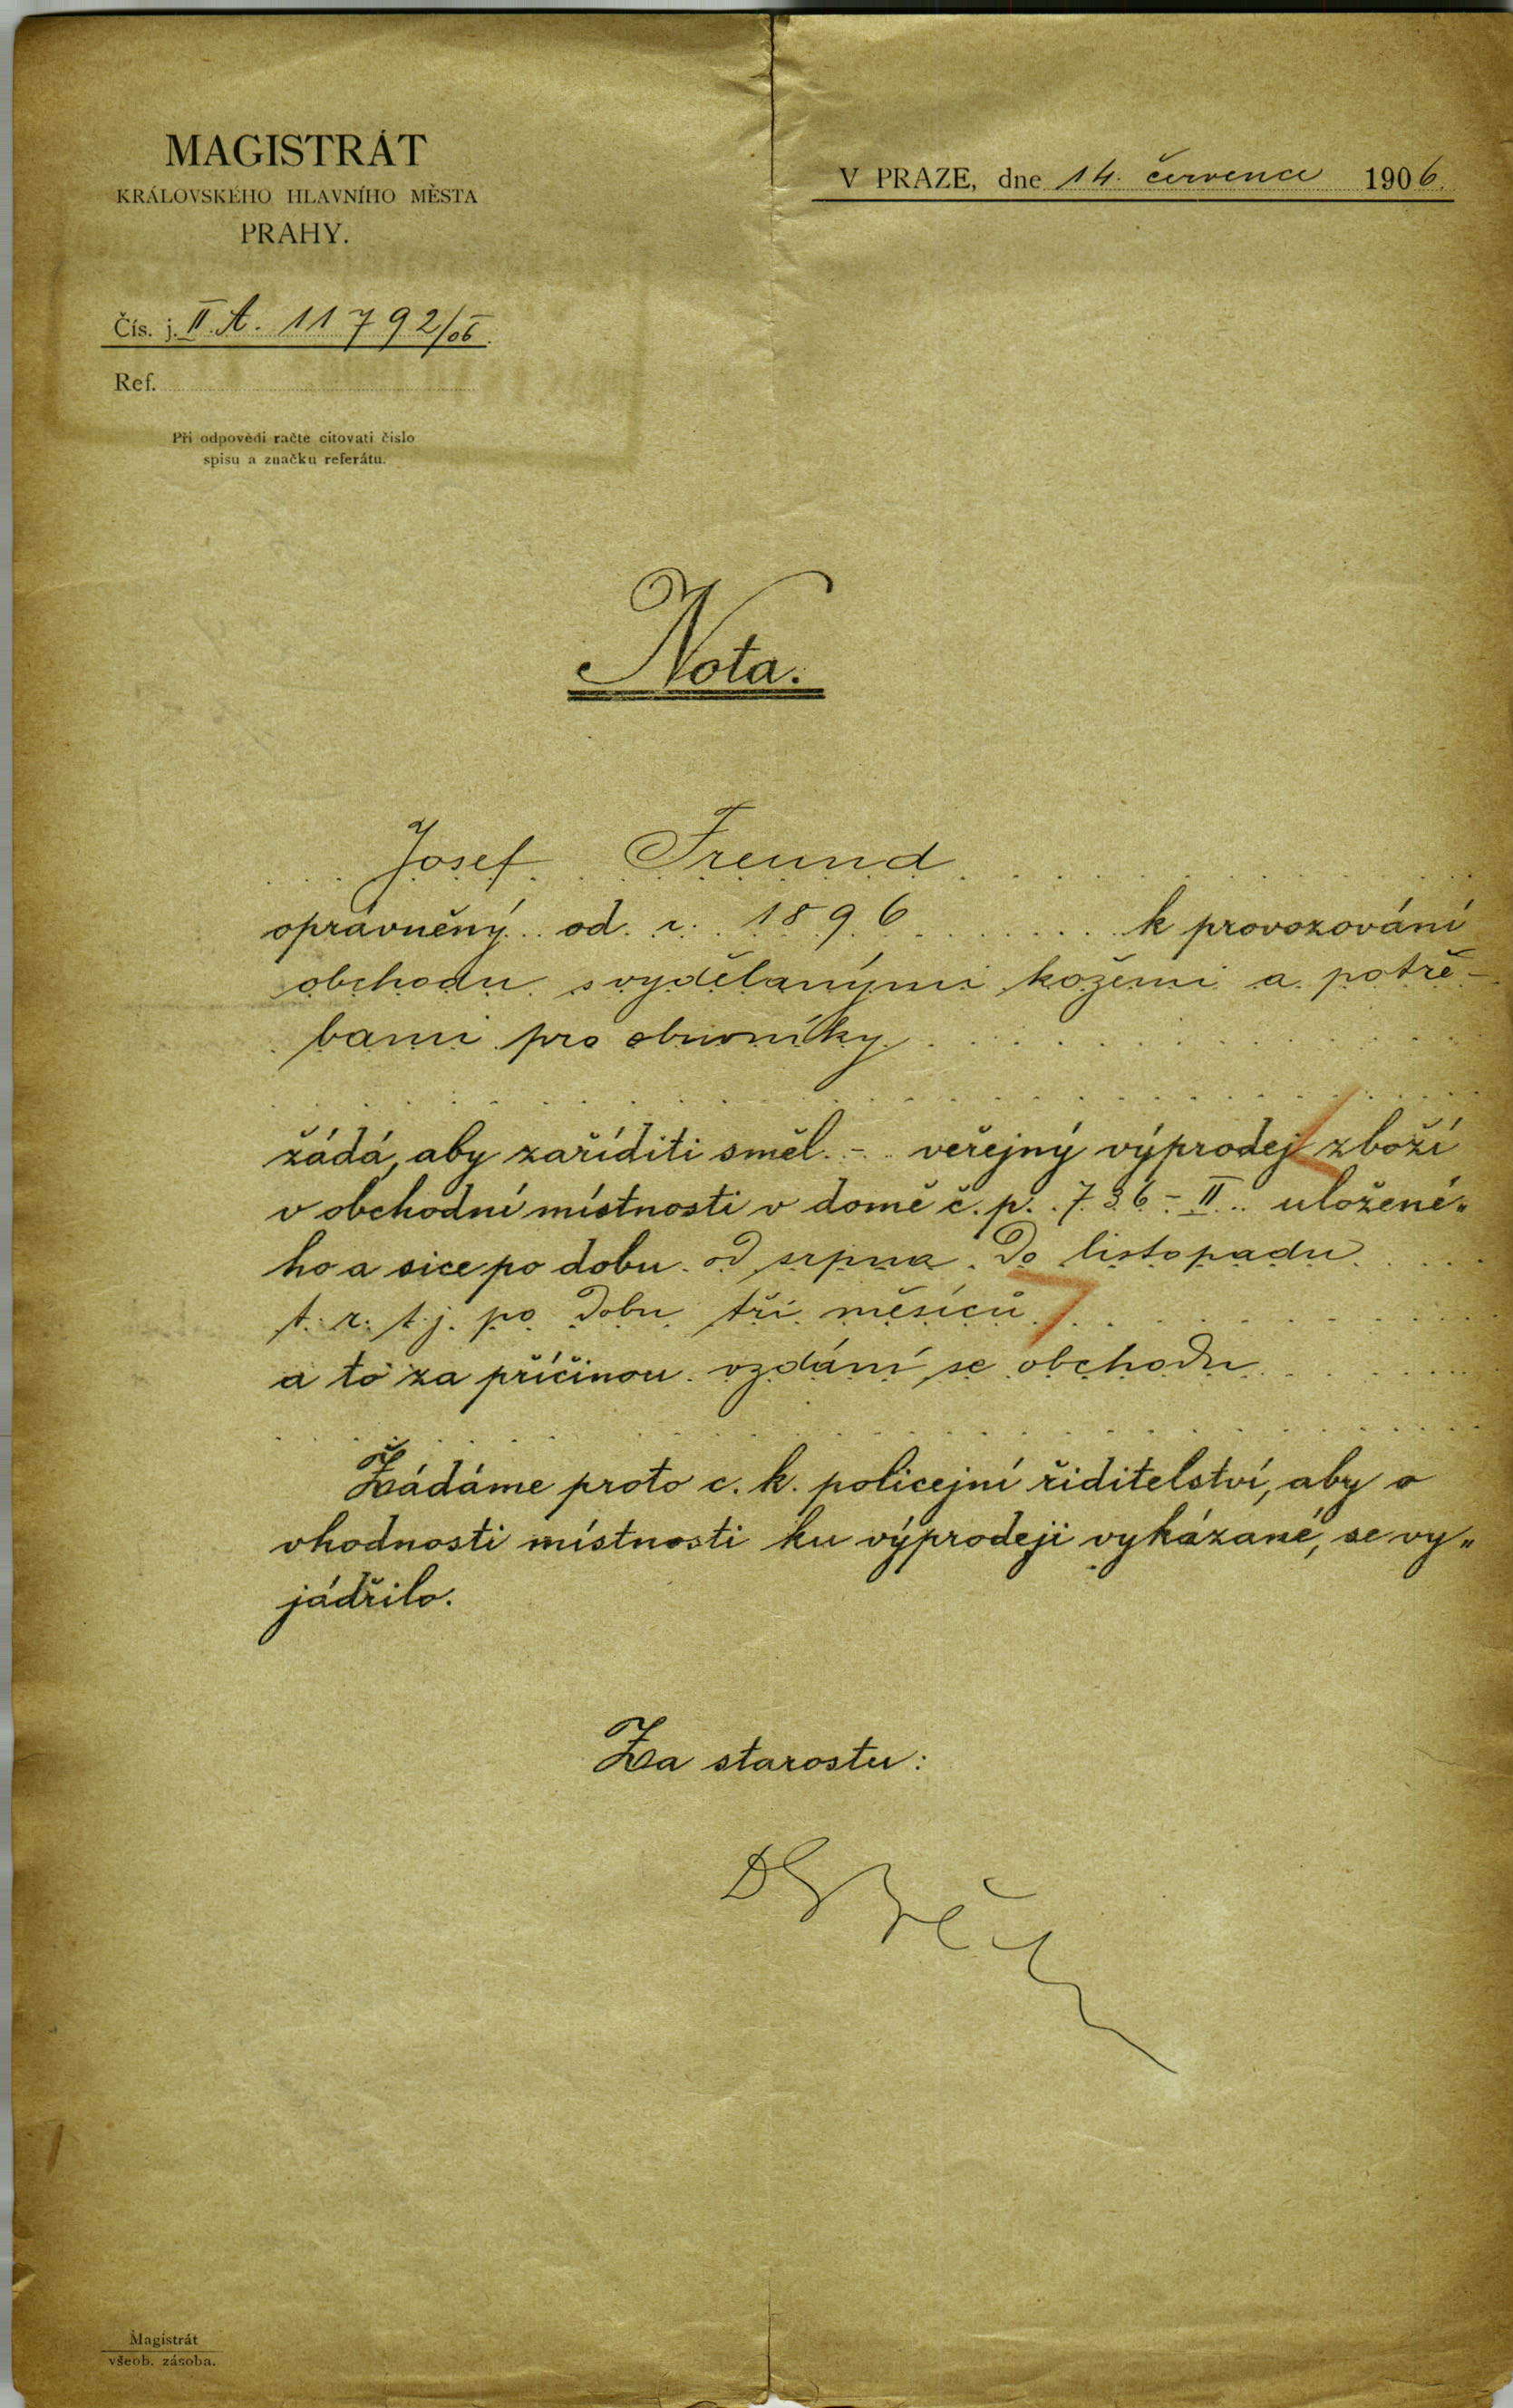 MAGISTRÁT
KRÁLOVSKÉHO HLAVNÍHO MĚSTA
PRAHY.
V PRAZE, dne 14. července 1906.
Čís. j. II. A. 11792/06.
Ref.
Při odpovědi račte citovati číslo
spisu a značku referátu.
Nota.
Josef Freund
oprávněný od r. 1896 k provozování
obchodu s vydělanými kožemi a potře-
bami pro obuvníky
žádá, aby zaříditi směl - veřejný výprodej zboží
v obchodní místnosti v domě č. p. 736 - II uložené„
ho a sice po dobu od srpna do listopadu
t. r. t. j. po dobu tří měsíců
a to za příčinou vzdání se obchodu
Žádáme proto c. k. policejní řiditelství, aby o
vhodnosti místnosti ku výprodeji vykázané, se vy„
jádřilo.
Za starostu:
Magistrát
všeob. zásoba.